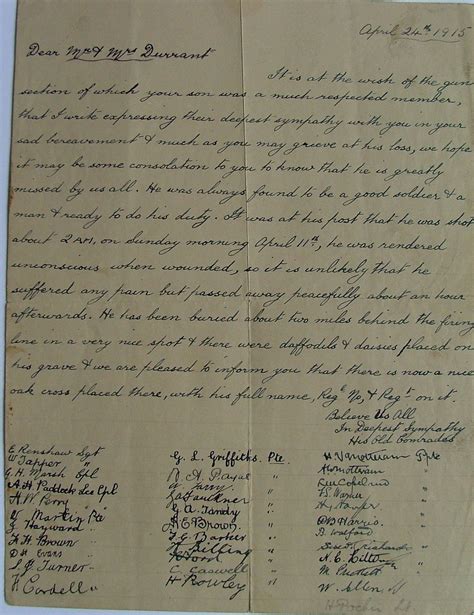 April 24th 1915
Dear Mr & Mrs Durrant
It is at the wish of the gun
section of which your son was a much respected member,
that I write expressing their deepest sympathy with you in your
sad bereavement & much as you may grieve at his loss, we hope
it may be some consolation to you to know that he is greatly
missed by us all. He was always found to be a good soldier & a
man & ready to do his duty. It was at his post that he was shot
about 2 AM, on Sunday morning April 11th, he was rendered
unconscious when wounded, so it is unlikely that he
suffered any pain but passed away peacefully about an hour
afterwards. He has been buried about two miles behind the firing
line in a very nice spot & there were daffodils & daisies placed on
his grave & we are pleased to inform you that there is now a nice
oak cross placed there, with his full name, Reg No, & Regt on it.
Believe Us All
In Deepest Sympathy
His Old Comrades
E Renshaw Sgt
W Tapper "
G. H. Marsh Cpl
A. H. Paddock Lce Cpl
H W. Perry "
W Martin Pte
Hayward "
H. Brown "
D H Evans "
Turner "
Cordell "
G. L. Griffiths. Pte
A. Payne "
"
Faulkner "
A. Tandy "
E Brown "
G Barker "
"
Wood "
C. Caswell "
H Rowley "
H Pte
H Mottram
Copeland
F S.
H Hooper
Harris.
Watford
Richards
N. E.
M.
W. Allen
H